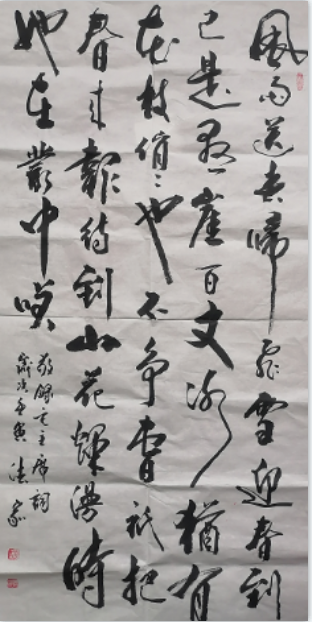 風雨送春歸飛雪迎春到
已是懸崖百丈冰猶有
花枝俏〻也不争春祇把
春来報待到山花爛漫時
她在叢中笑
敬録毛主席詞
歲次寅